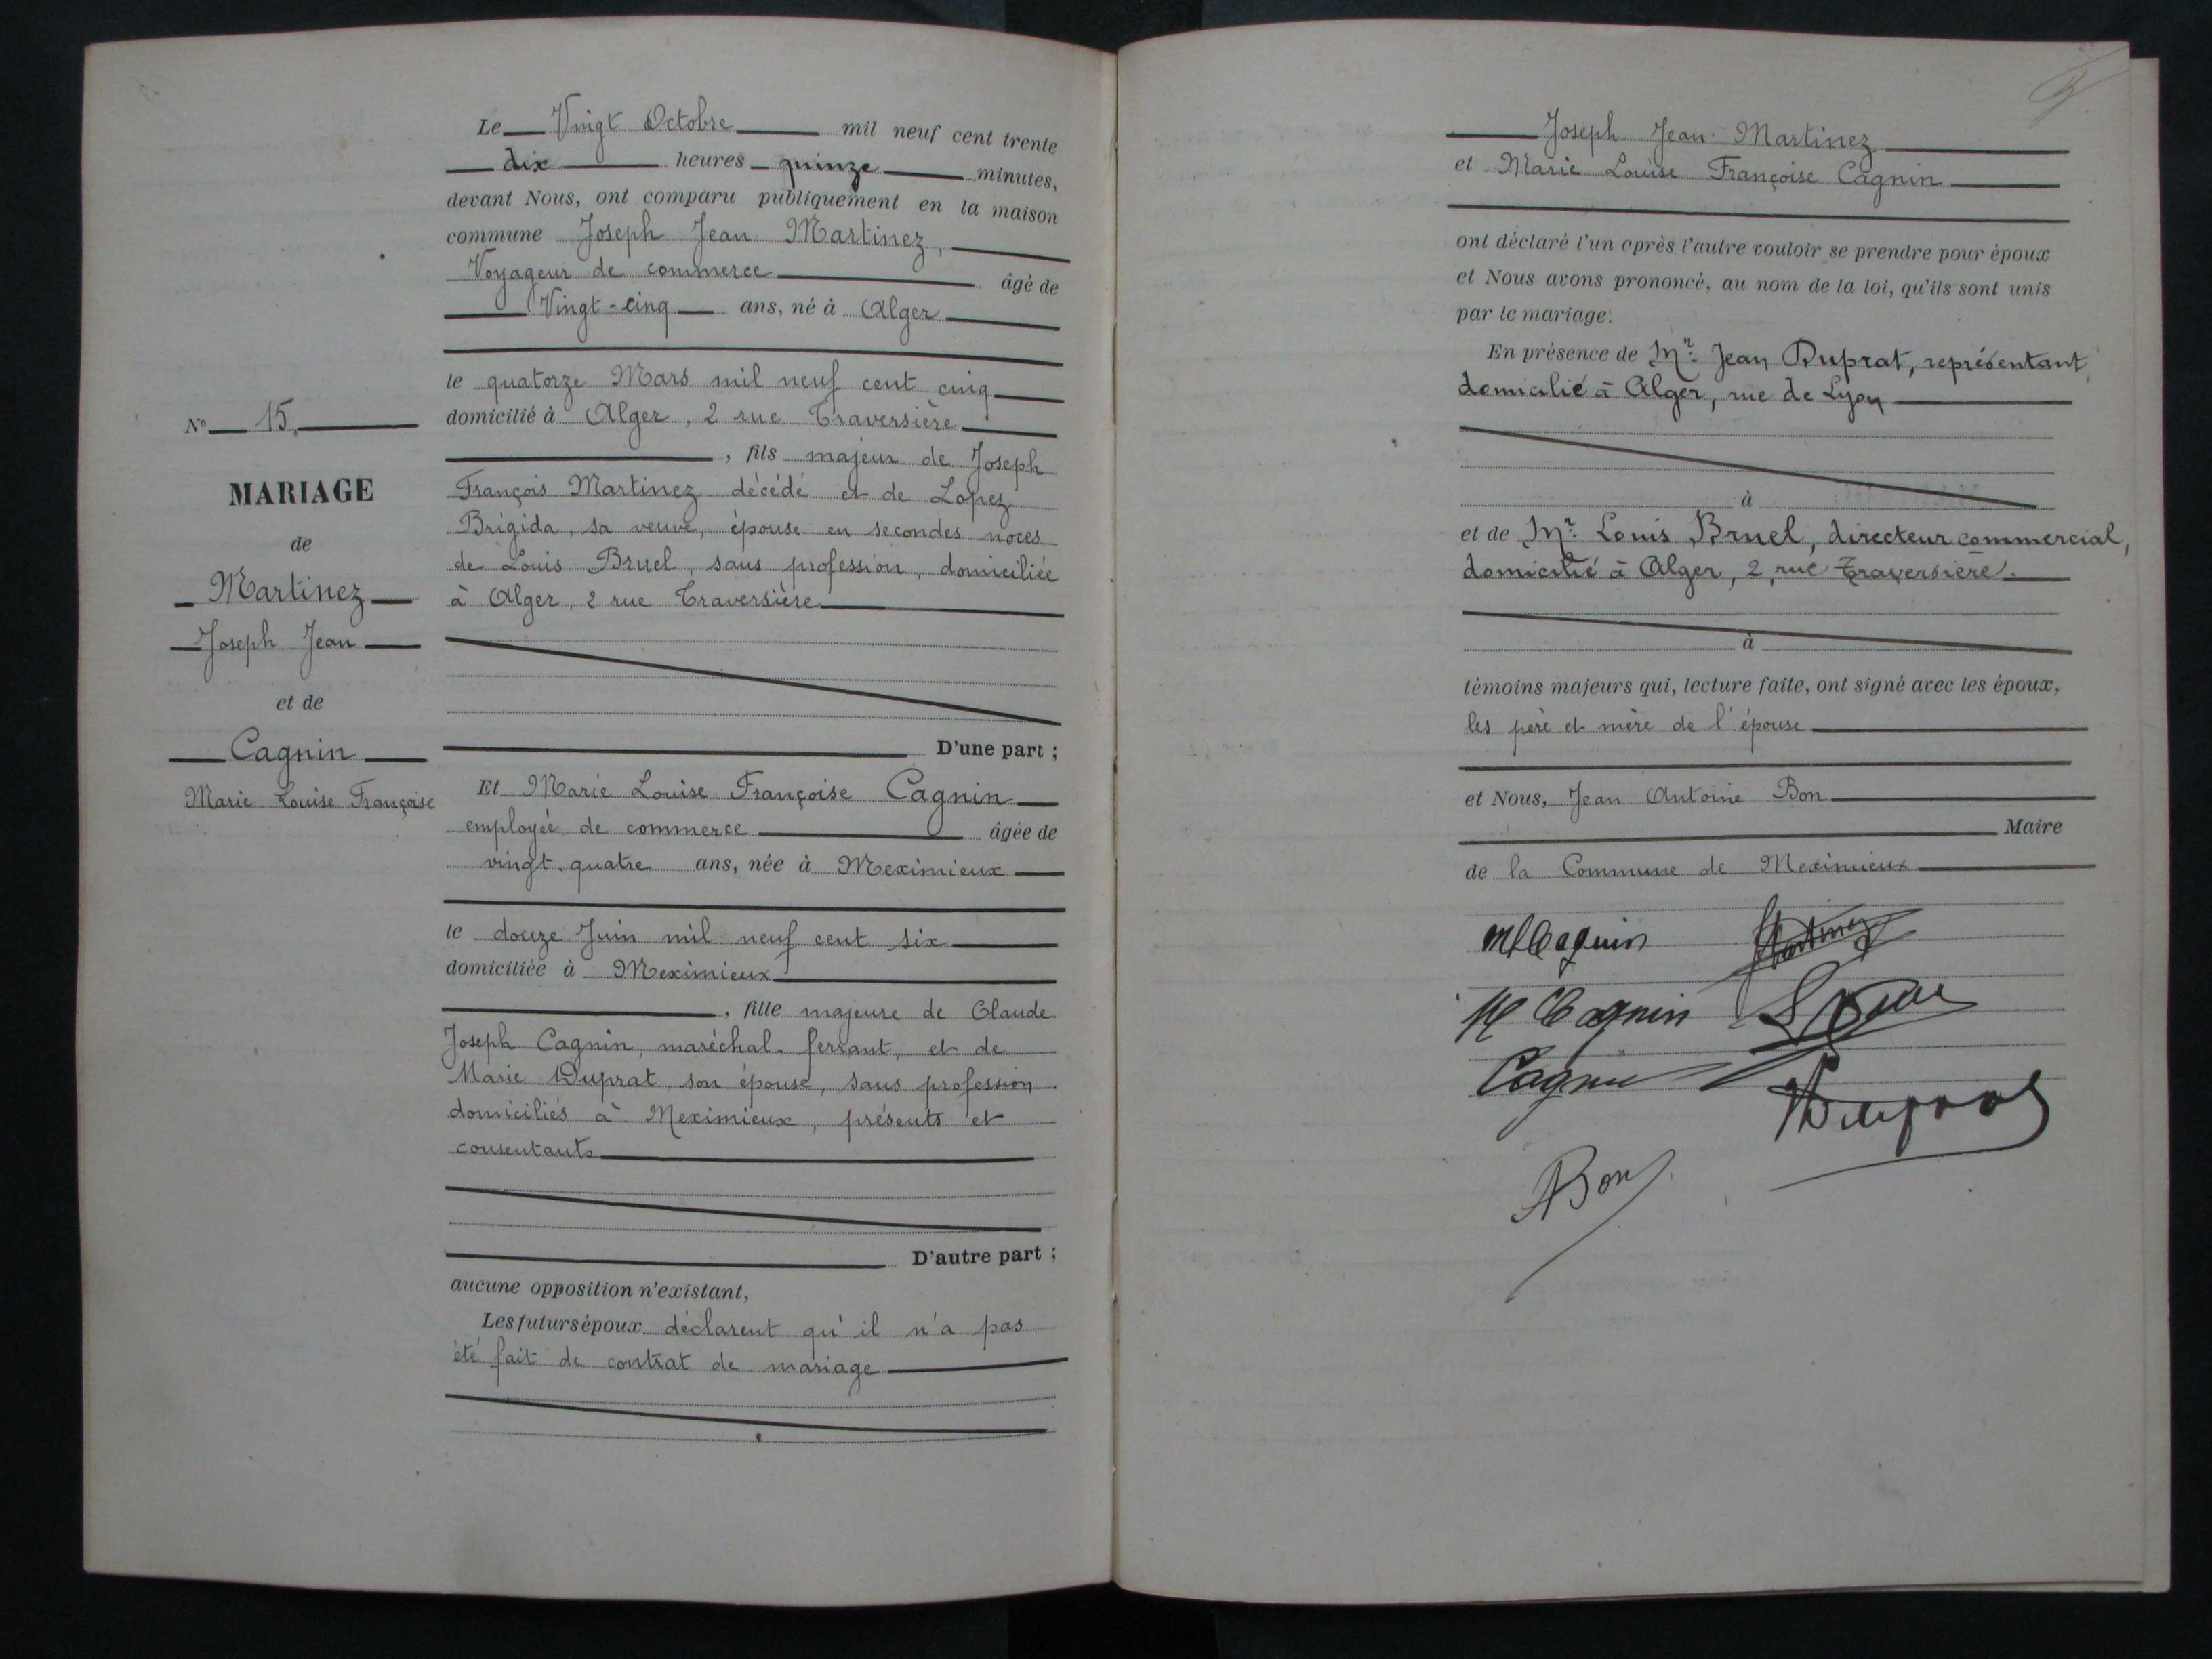 Le Vingt Octobre mil neuf cent trente
dix heures quinze minutes,
devant Nous, ont comparu publiquement en la maison
commune Joseph Jean Martinez,
Voyageur de commerce âgé de
Vingt-cinq ans, né à Alger
le quatorze Mars mil neuf cent cinq
domicilié à Alger, 2 rue Traversière
, fils majeur de Joseph
François Martinez décédé et de Lopez
Brigida, sa veuve, épouse en secondes noces
de Louis Bruel, sans profession, domiciliée
à Alger, 2 rue Traversière
D'une part ;
Nº 15.
MARIAGE
de
Martinez
Joseph Jean
et de
Cagnin
Marie Louise Françoise
Et Marie Louise Françoise Cagnin
employée de commerce âgée de
vingt-quatre ans, née à Meximieux
le douze Juin mil neuf cent six
domiciliée à Meximieux
, fille majeure de Claude
Joseph Cagnin, maréchal-ferrant, et de
Marie Duprat, son épouse, sans profession
domiciliés à Meximieux, présents et
consentants
D'autre part ;
aucune opposition n'existant,
Les futurs époux déclarent qu'il n'a pas
été fait de contrat de mariage
Joseph Jean Martinez
et Marie Louise Françoise Cagnin
ont déclaré l'un après l'autre vouloir se prendre pour époux
et Nous avons prononcé, au nom de la loi, qu'ils sont unis
par le mariage.
En présence de Mr Jean Duprat, représentant
domicilié à Alger, rue de Lyon
à
et de Mr Louis Bruel, directeur commercial,
domicilié à Alger, 2, rue Traversière.
à
témoins majeurs qui, lecture faite, ont signé avec les époux,
les père et mère de l'épouse
et Nous, Jean Antoine Bon
Maire
de la Commune de Meximieux
ML Cagnin Martinez
M Cagnin
Cagnin
Duprat
ABon